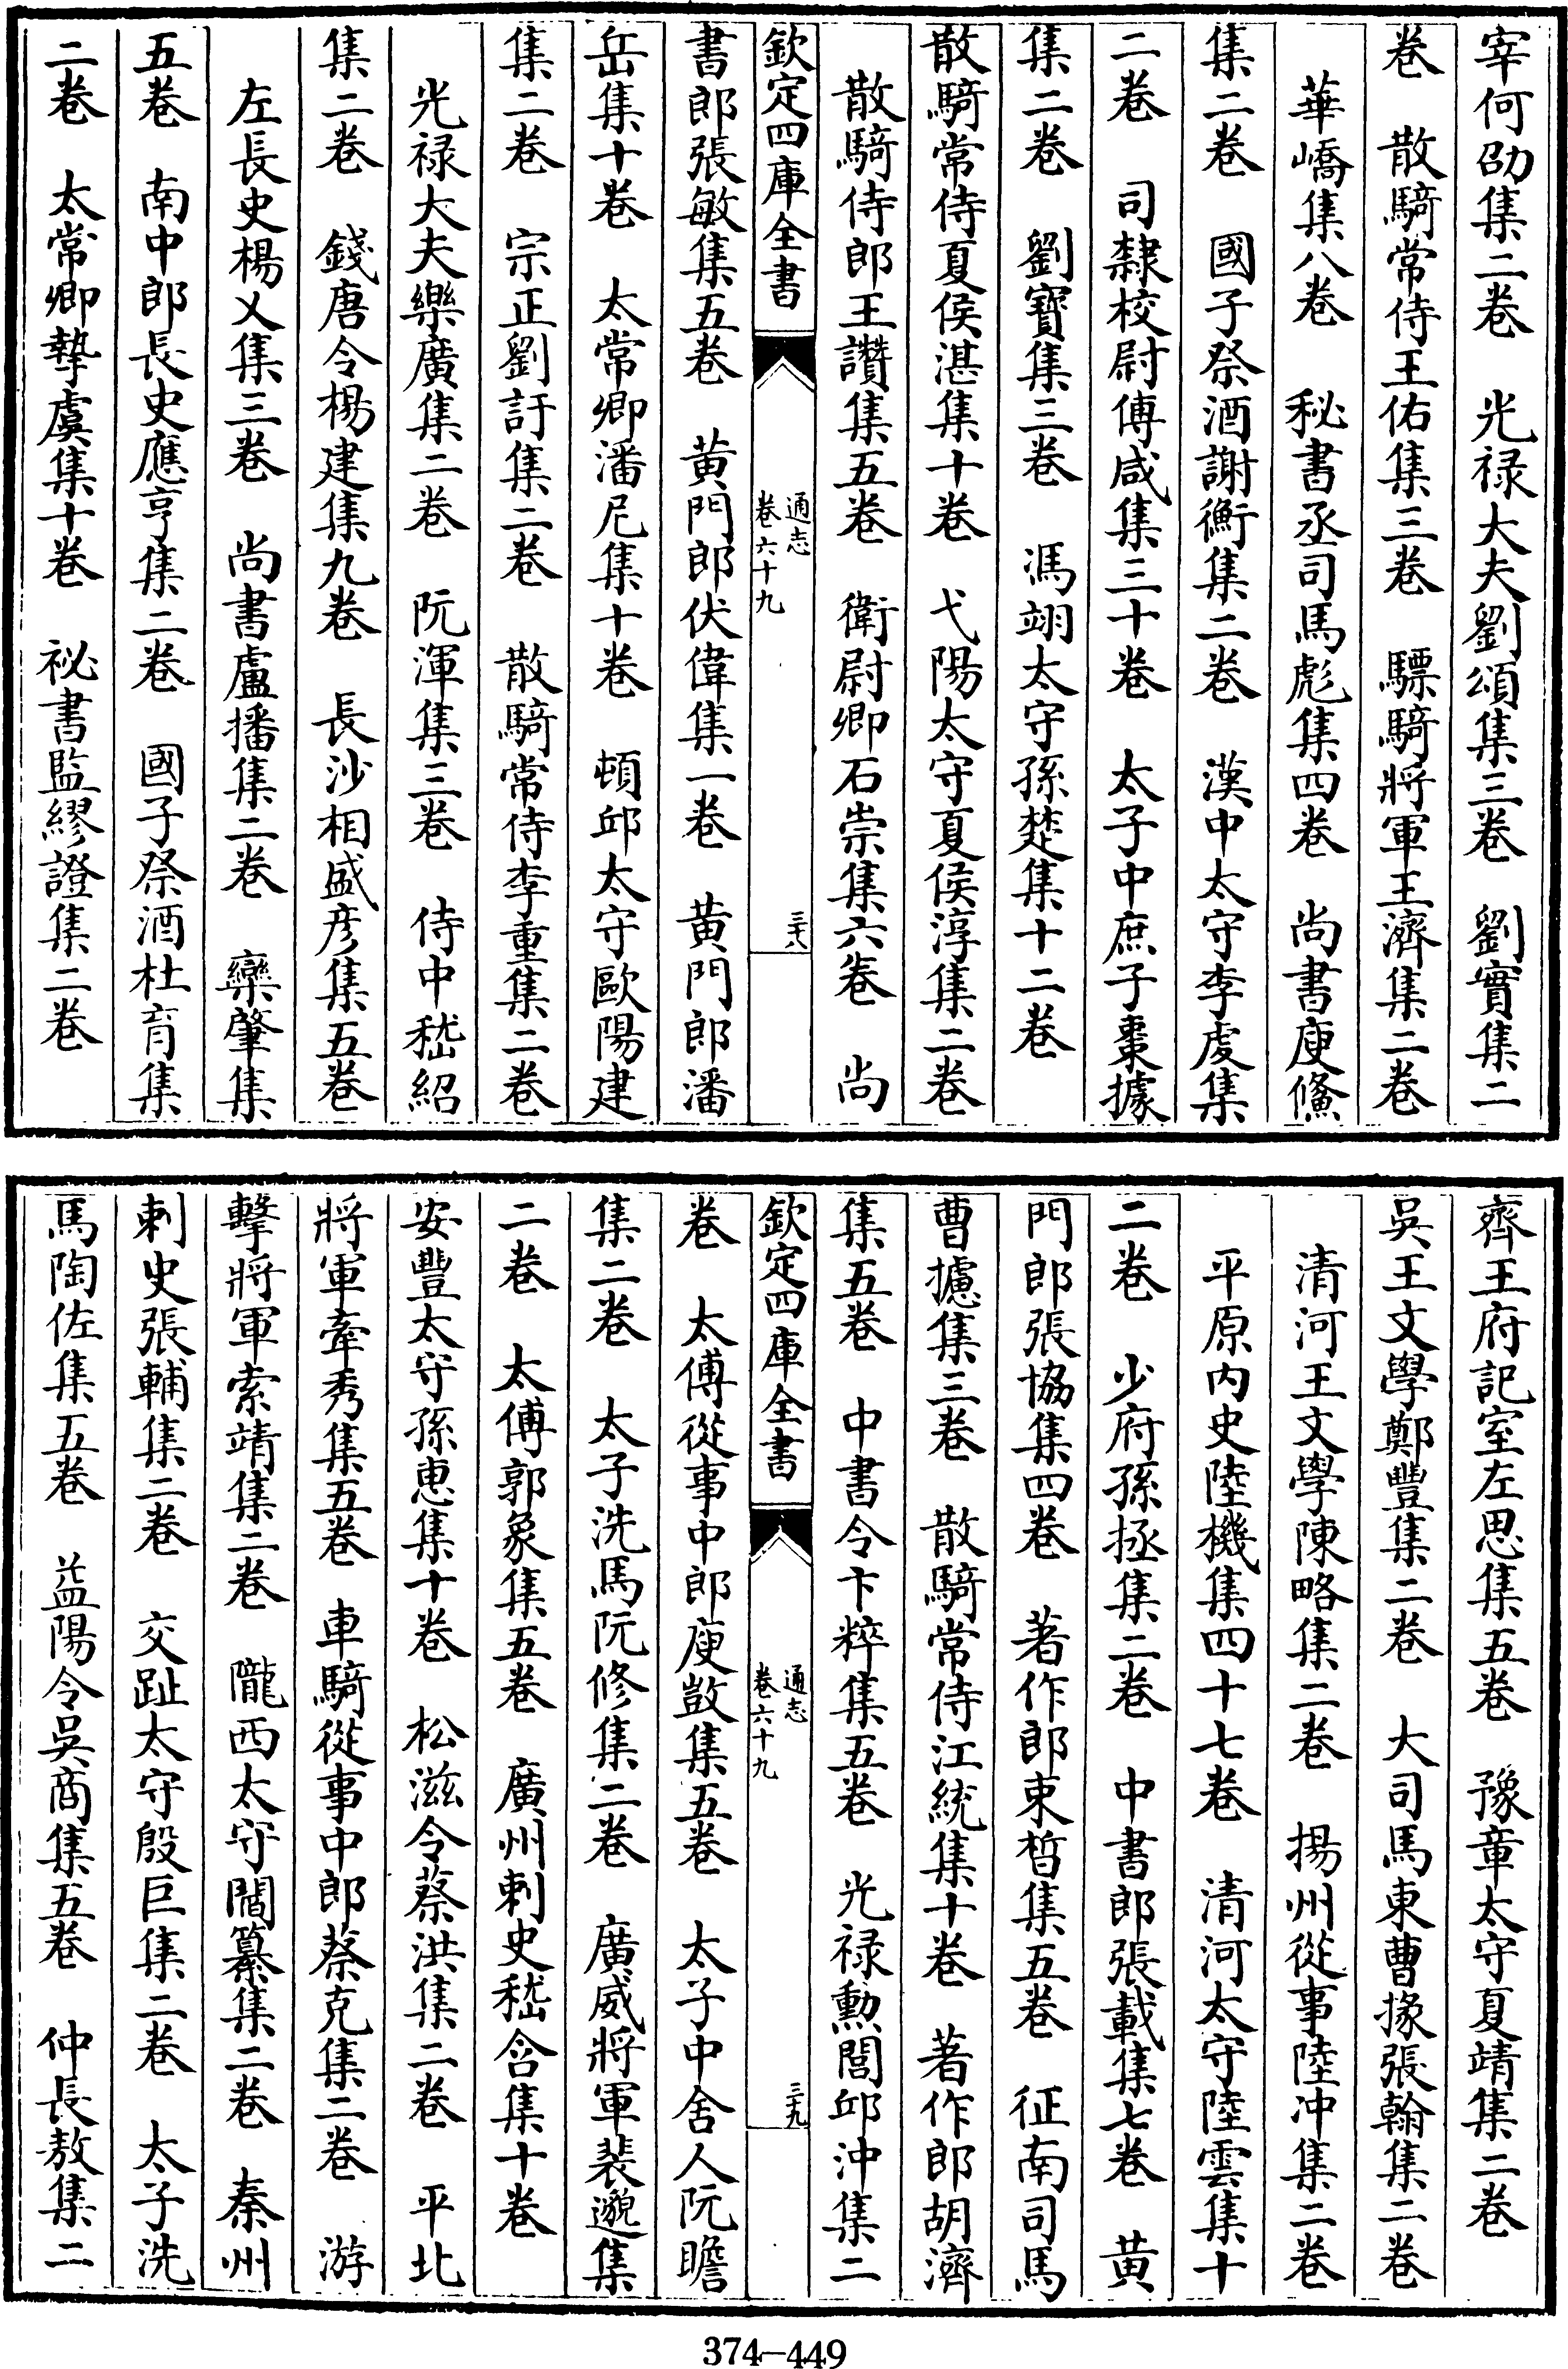 宰何劭集二卷　光禄大夫劉頌集三卷　劉實集二
卷　散騎常侍王佑集三卷　驃騎將軍王濟集二卷
華嶠集八卷　秘書丞司馬彪集四卷　尚書庾儵
集二卷　國子祭酒謝衡集二卷　漢中太守李虔集
二卷　司隸校尉傅咸集三十卷　太子中庶子棗據
集二卷　劉寶集三卷　馮翊太守孫楚集十二卷
散騎常侍夏侯湛集十卷　弋陽太守夏侯淳集二卷
散騎侍郎王讚集五卷　衛尉卿石崇集六卷　尚
欽定四庫全書
通志
卷六十九
三十八
書郎張敏集五卷　黄門郎伏偉集一卷　黄門郎潘
岳集十卷　太常卿潘尼集十卷　頓邱太守歐陽建
集二卷　宗正劉訏集二卷　散騎常侍李重集二卷
光禄大夫樂廣集二卷　阮渾集三卷　侍中嵇紹
集二卷　錢唐令楊建集九卷　長沙相盛彦集五卷
左長史楊乂集三卷　尚書盧播集二卷　欒肇集
五卷　南中郎長史應亨集二卷　國子祭酒杜育集
二卷　太常卿摯虞集十卷　祕書監繆證集二卷
齊王府記室左思集五卷　豫章太守夏靖集二卷
吳王文學鄭豐集二卷　大司馬東曹掾張翰集二卷
清河王文學陳略集二卷　揚州從事陸冲集二卷
平原内史陸機集四十七卷　清河太守陸雲集十
二卷　少府孫拯集二卷　中書郎張載集七卷　黄
門郎張協集四卷　著作郎束皙集五卷　征南司馬
曹攄集三卷　散騎常侍江統集十卷　著作郎胡濟
集五卷　中書令卞粹集五卷　光禄勲閭邱沖集二
欽定四庫全書
通志
卷六十九
三十九
卷　太傅從事中郎庾敳集五卷　太子中舍人阮瞻
集二卷　太子洗馬阮修集二卷　廣威將軍裴邈集
二卷　太傅郭象集五卷　廣州刺史嵇含集十卷
安豐太守孫惠集十卷　松滋令蔡洪集二卷　平北
將軍牽秀集五卷　車騎從事中郎蔡克集二卷　游
擊將軍索靖集二卷　隴西太守閻纂集二卷　秦州
刺史張輔集二卷　交趾太守殷巨集二卷　太子洗
馬陶佐集五卷　益陽令吳商集五卷　仲長敖集二
374-449